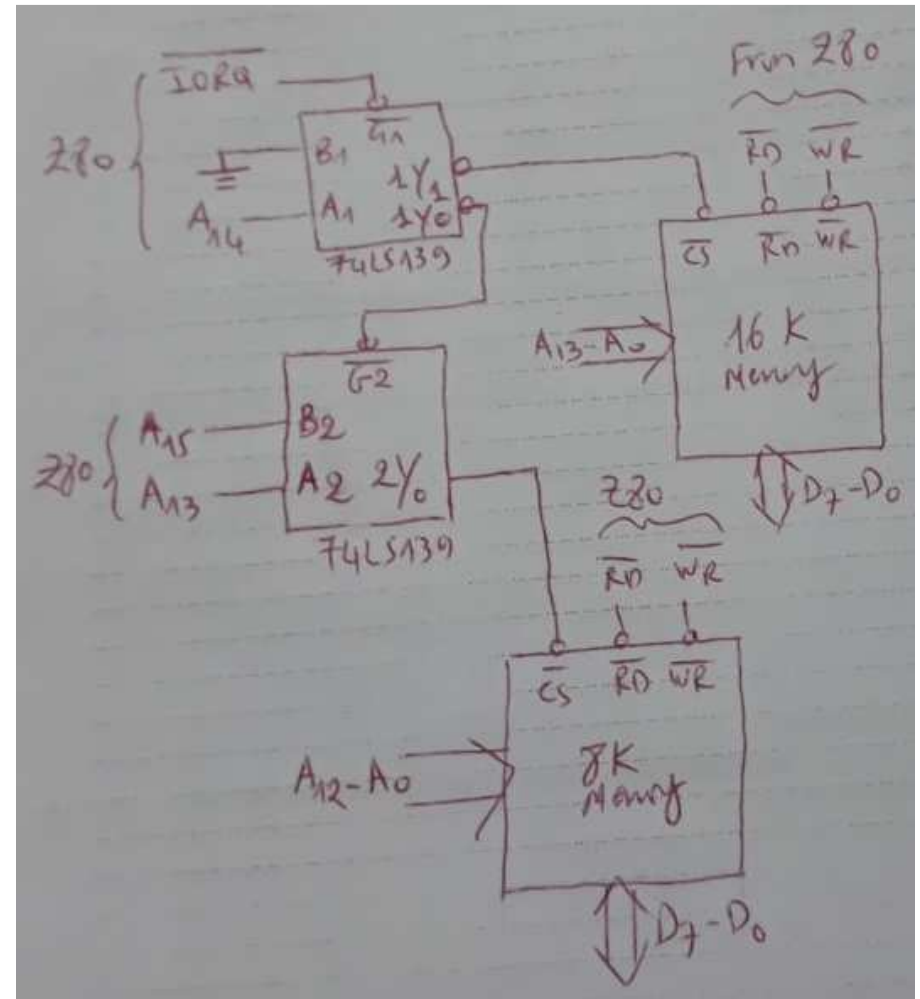 Z80
IORQ
A14
G1
B1
A1
1Y1
1Y0
74LS139
From Z80
RD WR
CS RD WR
A13-A0
16 K
Memory
D7-D0
Z80
A15
A13
G2
B2
A2 2Y0
74LS139
Z80
RD WR
CS RD WR
A12-A0
8K
Memory
D7-D0